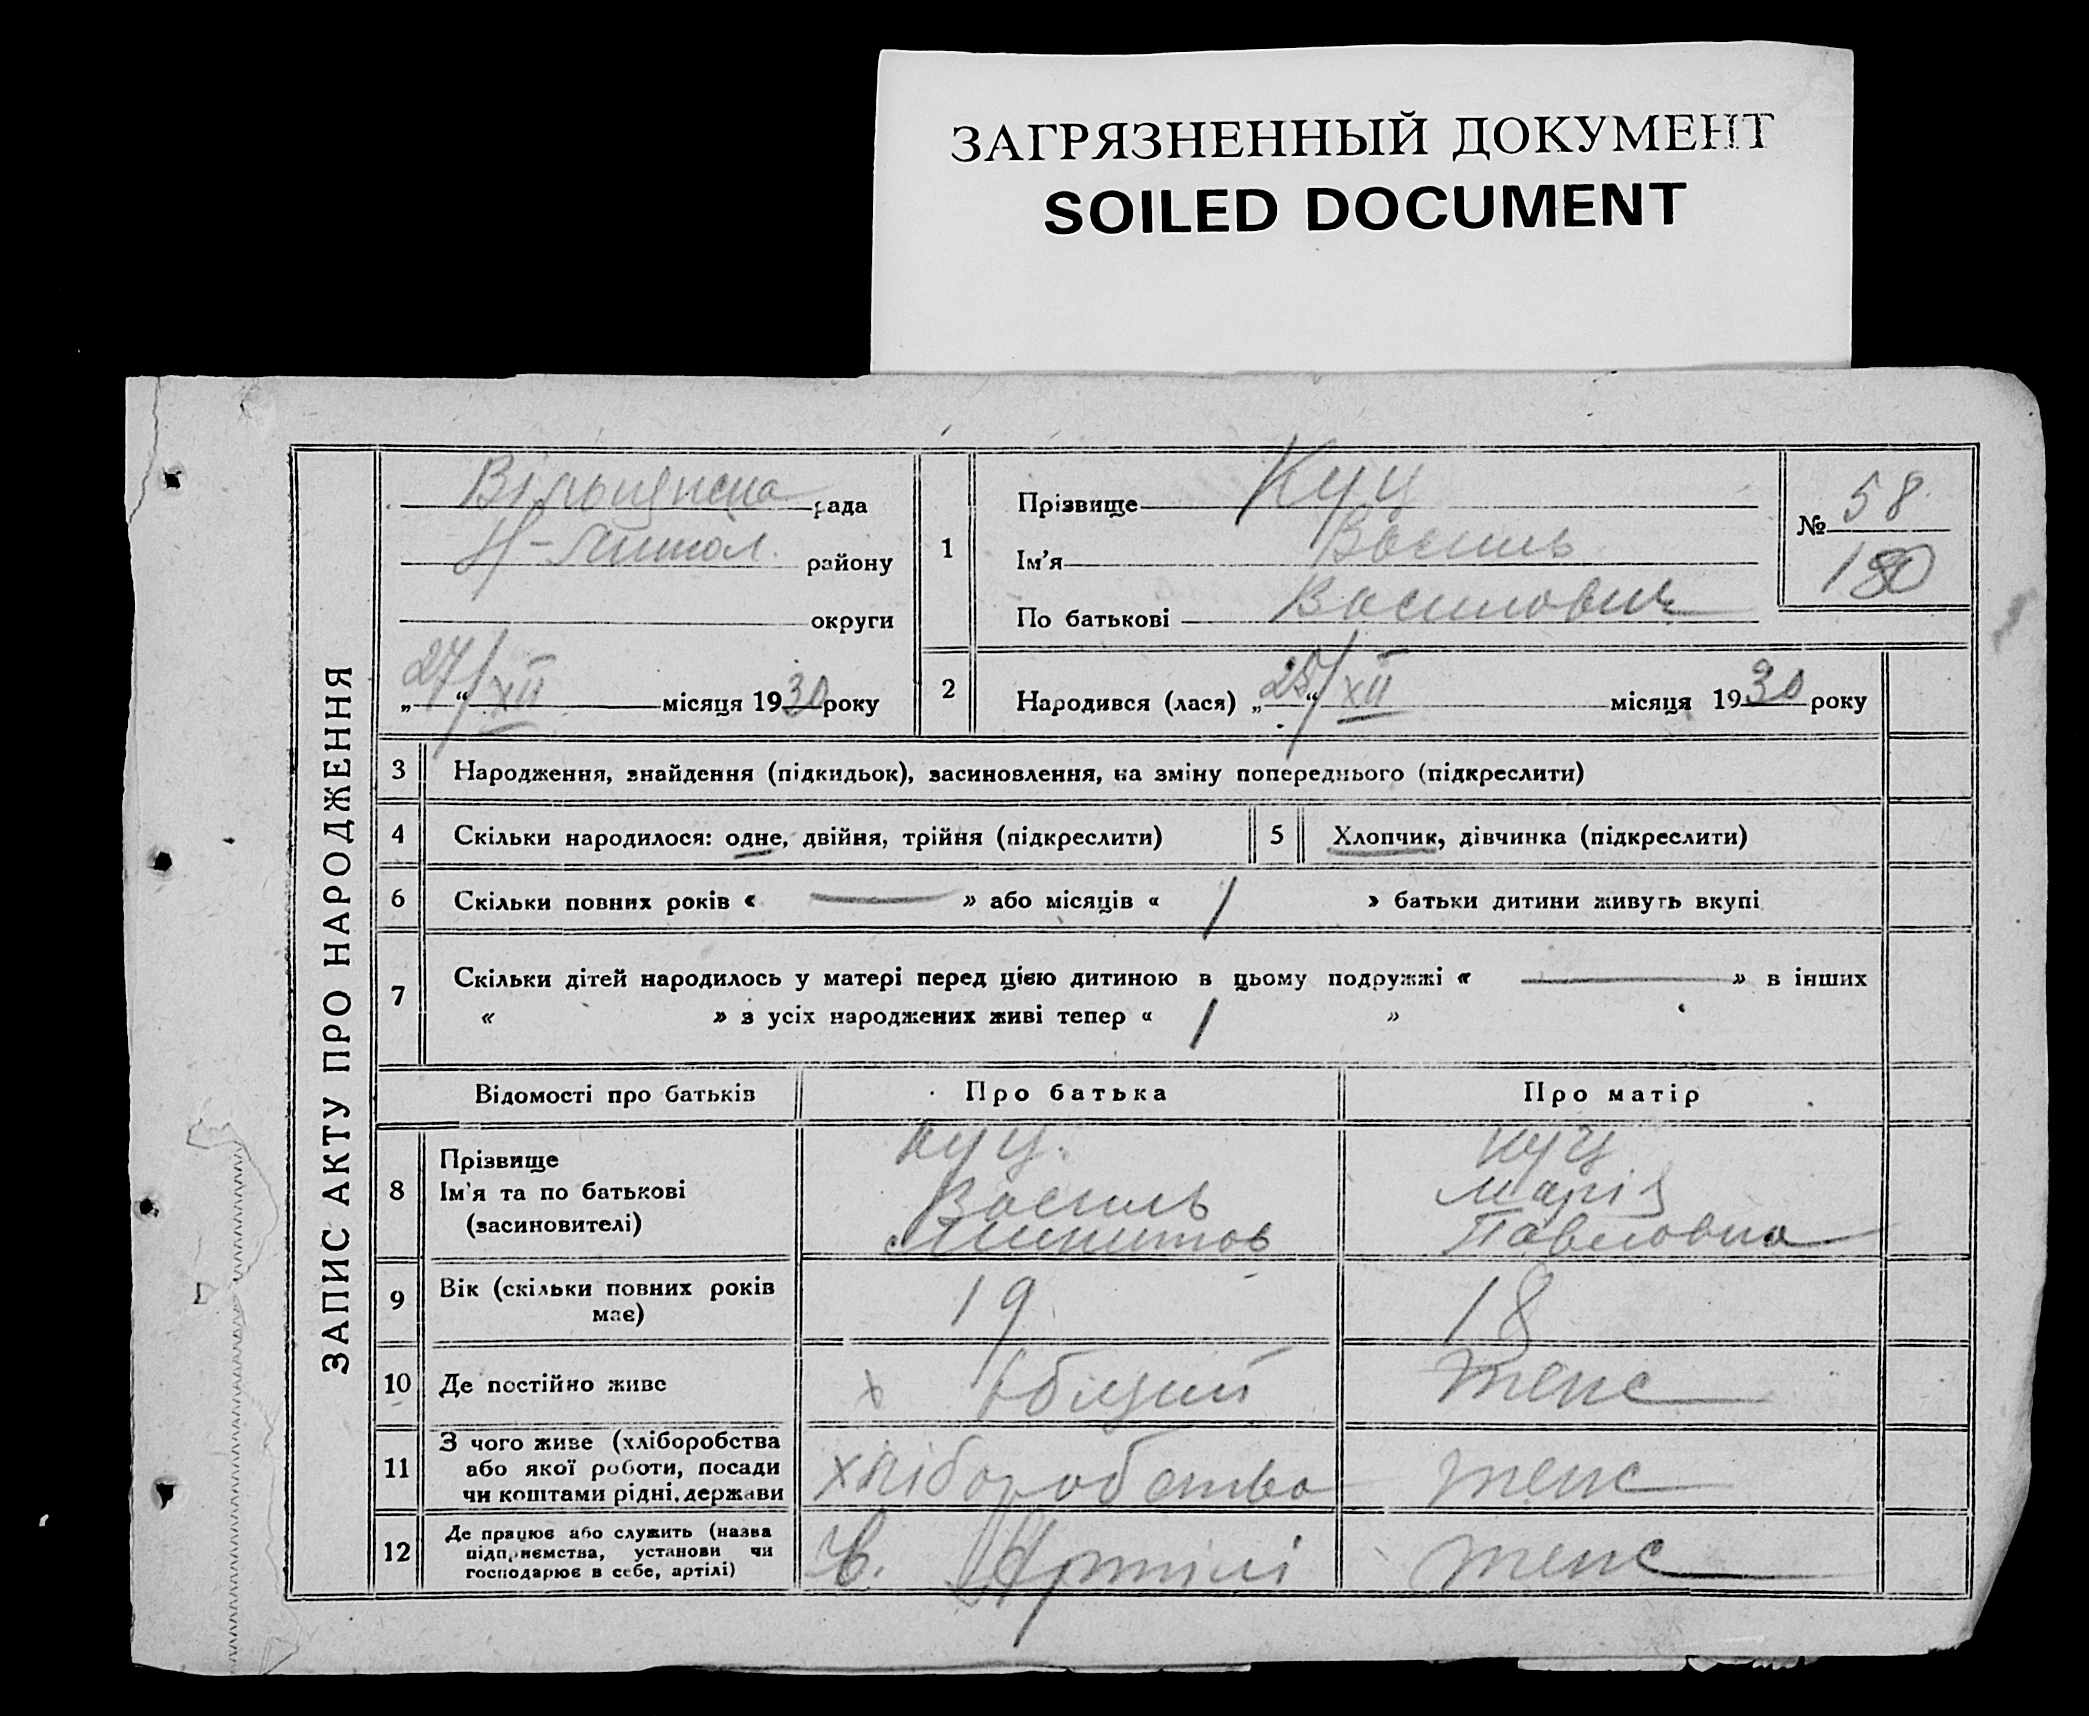 ЗАГРЯЗНЕННЫЙ ДОКУМЕНТ
SOILED DOCUMENT
ЗАПИС АКТУ ПРО НАРОДЖЕННЯ
рада
району
округи
„27“ XII місяця 1930 року
1
Прізвище Куц
Ім'я Василь
По батькові Василович
№ 58
180
2 Народився (лася) „25“ XII місяця 1930 року
3 Народження, знайдення (підкидьок), засиновлення, на зміну попереднього (підкреслити)
4 Скільки народилося: одне, двійня, трійня (підкреслити)
5 Хлопчик, дівчинка (підкреслити)
6 Скільки повних років « — » або місяців « 1 » батьки дитини живуть вкупі
7 Скільки дітей народилось у матері перед цією дитиною в цьому подружжі « — » в інших
« » з усіх народжених живі тепер « 1 »
Відомості про батьків Про батька Про матір
8 Прізвище Куц Куц
Ім'я та по батькові Василь Марія
(засиновителі) Микитов Павловна
9 Вік (скільки повних років має) 19 18
10 Де постійно живе х теж
11 З чого живе (хліборобства
або якої роботи, посади
чи коштами рідні, держави
хліборобство теж
12 Де працює або служить (назва
підприємства, установи чи
господарює в себе, артілі)
Артілі теж